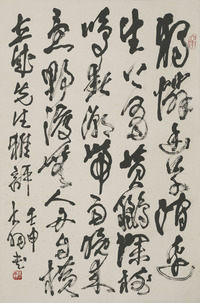 獨憐幽草澗邊
生上有黄鸝深樹
鳴春潮帶雨晚來
急野渡無人舟自橫
先生雅評
壬申